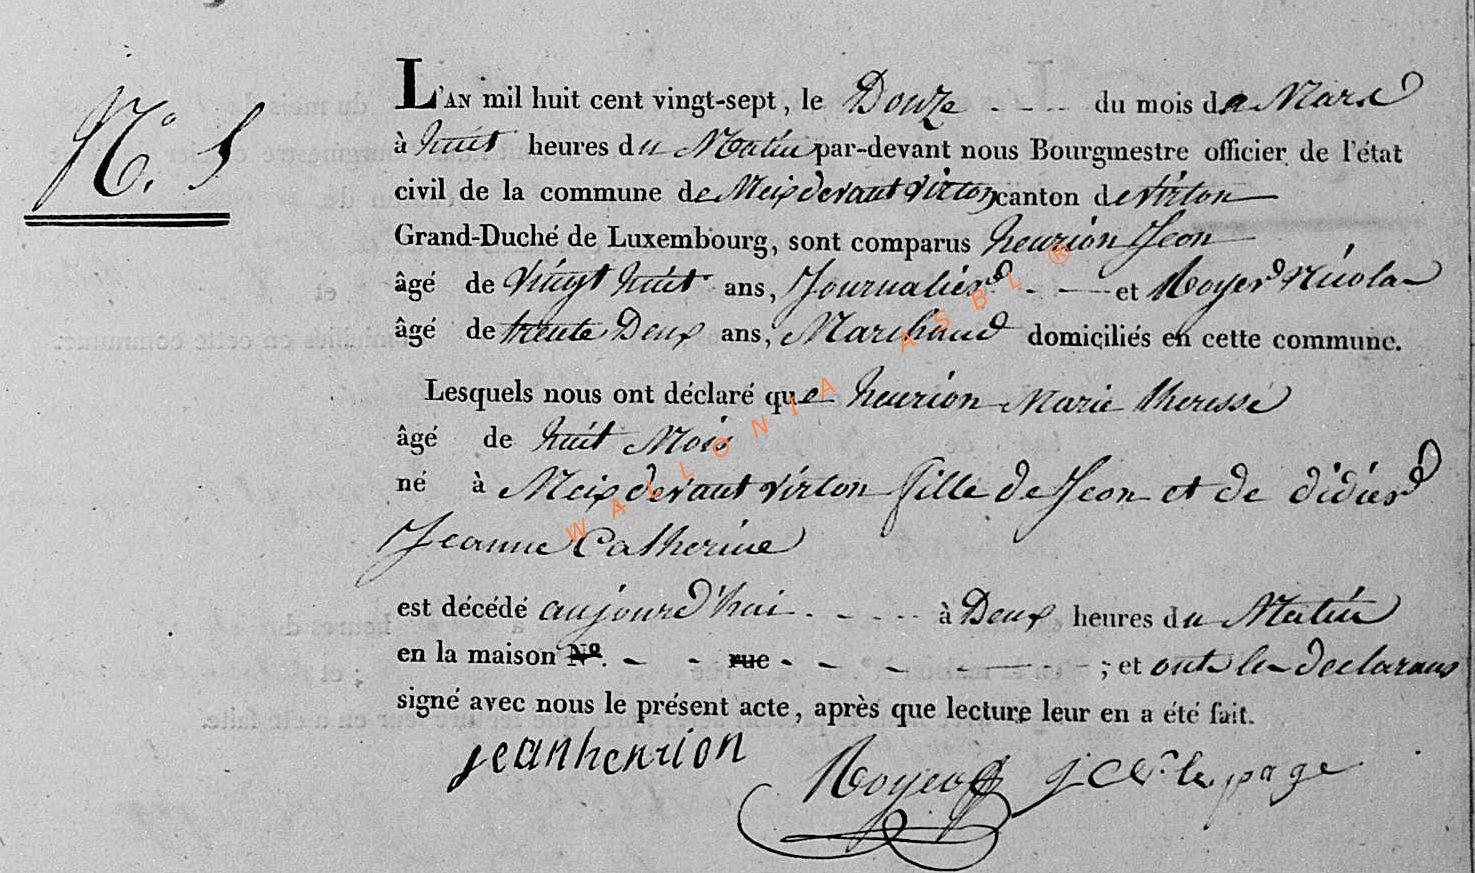 N.° 5
L'AN mil huit cent vingt-sept, le Douze du mois de Mars
à huit heures du Matin par-devant nous Bourgmestre officier de l'état
civil de la commune de Meix devant Virton canton de Virton
Grand-Duché de Luxembourg, sont comparus henrion Jean
âgé de vingt huit ans, Journalier et Noyer Nicolas
âgé de trente Deux ans, Marchand domiciliés en cette commune.
Lesquels nous ont déclaré que henrion Marie theresse
âgé de huit Mois
né à Meix devant virton fille de Jean et de didier
Jeanne Catherine
est décédé aujourd'hui à Deux heures du Matin
en la maison N°. rue ; et ont les declarans
signé avec nous le présent acte, après que lecture leur en a été fait.
jean henrion J lepage
WALLONIA ASBL ®